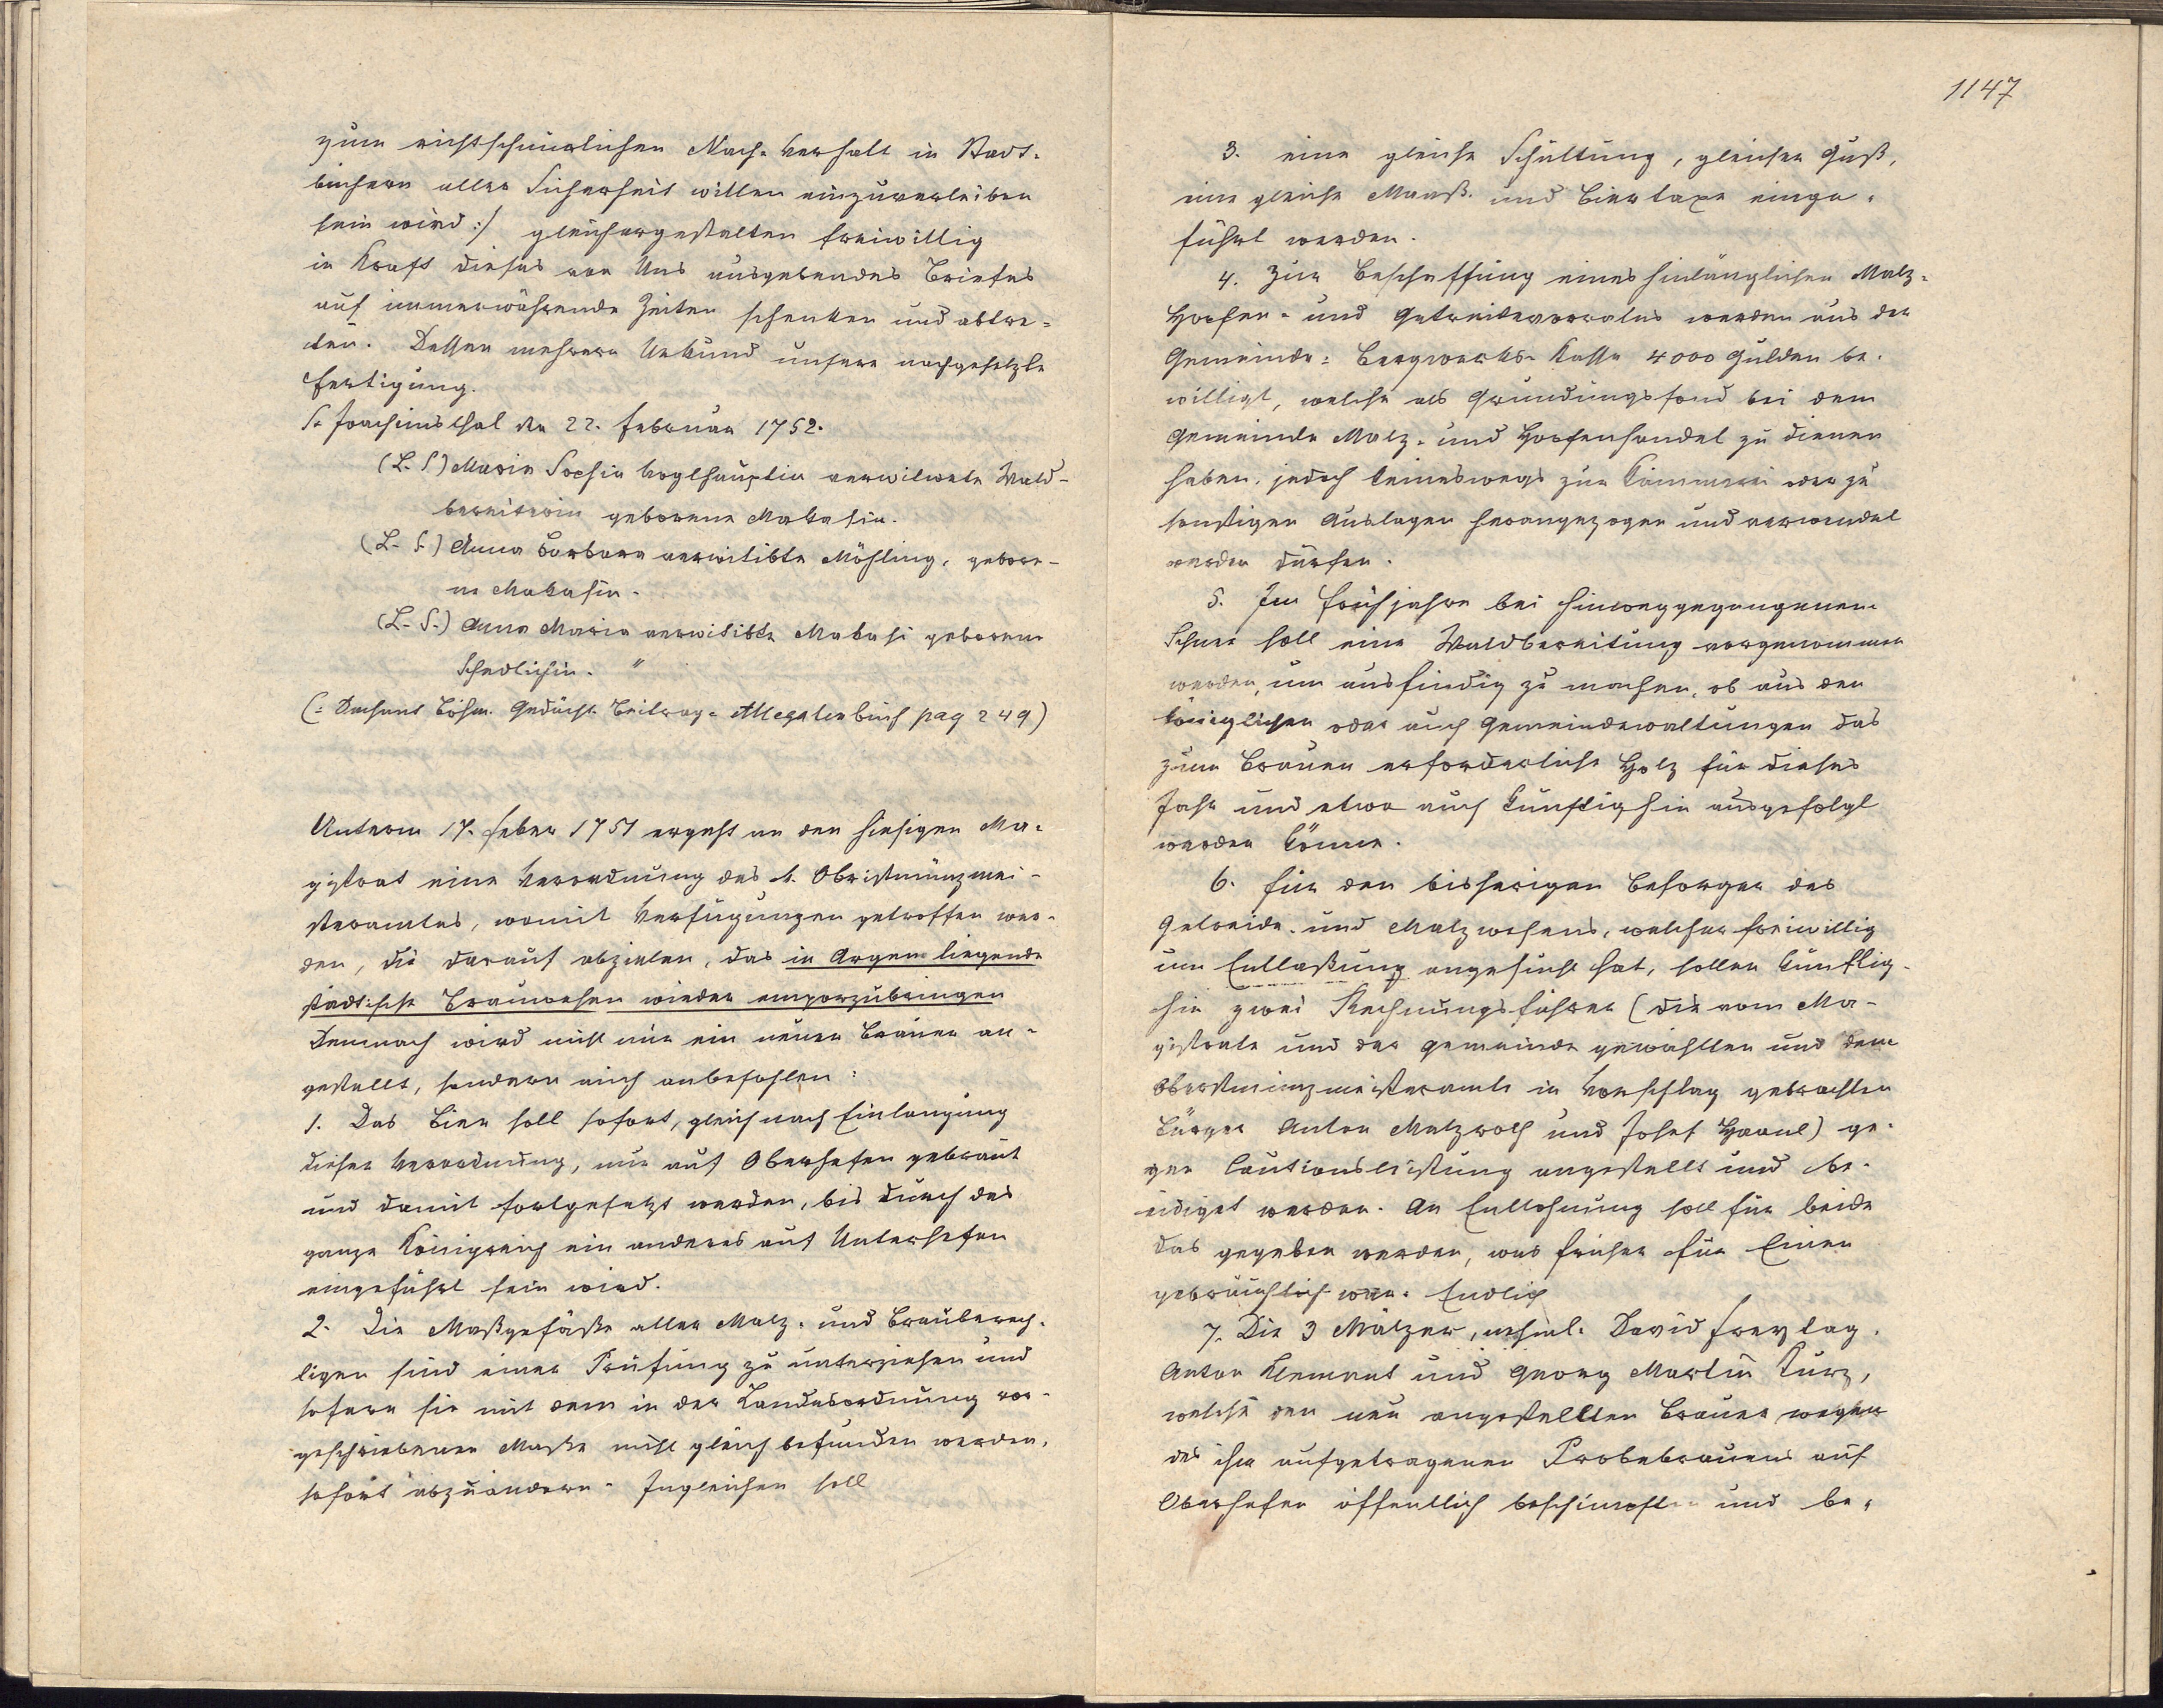 zum richtschnurlichen Nach-Verhalt in Stadt-
büchern aller Sicherheit willen einzuverleiben
sein wird :/ gleichergestalten freiwillig
in Kraft dieses von Uns ausgebendes Briefes
auf immerwährende Zeiten schenken und abtre-
ten. Dessen mehrere Urkund unsere nachgesetzte
Fertigung.
St. Joachimsthal den 22. Februar 1752.
(L. S) Maria Sophia Voglhauptin verwitwete Wald-
bereiterin geborene Makasin.
(L. S.) Anna Barbara verwitibte Möhling, gebore-
ne Makasin.
(L. S.) Anna Maria verwitibte Makasi geborene
Schedlichin. "
(: Dechant Böhm. Gedächt. Beitrag- Allegatenbuch pag 249)
Unterm 17. Feber 1751 ergeht an den hiesigen Ma-
gistrat eine Verordnung des k. Obristmünzmei-
steramtes, womit Verfügungen getroffen wer-
den, die darauf abzielen, das in Argem liegende
städtische Brauwesen wieder emporzubringen
Demnach wird nicht nur ein neuer Brauer an-
gestellt, sondern auch anbefohlen:
1. Das Bier soll sofort, gleich nach Einlangung
dieser Verordnung, nur auf Oberhefen gebraut
und damit fortgesetzt werden, bis durch das
ganze Königreich ein anderes auf Unterhefen
eingeführt sein wird.
2. Die Maßgefäße aller Malz- und Brauberech-
tigen sind einer Prüfung zu unterziehen und
sofern sie mit dem in der Landesordnung vor-
geschriebenen Maße nicht gleich befunden werden,
sofort abzuändern. Ingleichen soll
1147
3. eine gleiche Schüttung, gleicher Guß,
eine gleiche Maaß- und Biertaxe einge-
führt werden.
4. Zur Beschaffung eines hinlänglichen Malz-
Hopfen- und Getreidevorrates werden aus der
Gemeinde-Bergwerks-Kasse 4000 Gulden be-
willigt, welche als Gründungsfond bei dem
Gemeinde Malz- und Hopfenhandel zu dienen
haben, jedoch keineswegs zur Kämmerei oder zu
sonstigen Auslagen herangezogen und verwendet
werden dürfen.
5. Im Frühjahre bei hinweggegangenem
Schnee soll eine Waldbereitung vorgenommen
werden, um ausfindig zu machen, ob aus den
königlichen oder auch Gemeindewaltungen das
zum Brauen erforderliche Holz für dieses
Jahr und etwa auch künftighin ausgefolgt
werden könne.
6. Für den bisherigen Besorger des
Getreide- und Malzwesens, welcher freiwillig
um Entlaßung angesucht hat, sollen künftig-
hin zwei Rechnungsführer (die vom Ma-
gistrate und der Gemeinde gewählten und dem
Oberstmünzmeisteramte in Vorschlag gebrachten
Bürger Anton Matzroth und Josef Haanl) ge-
gen Cautionsleistung angestellt und be-
eidiget werden. An Entlohnung soll für beide
das gegeben werden, was früher für Einen
gebräuchlich war. Endlich
7. Die 3 Mälzer, nehml. David Freytag,
Anton Klement und Georg Martin Kurz,
welche den neu angestellten Brauer wegen
des ihm aufgetragenen Probebrauens auf
Oberhefen öffentlich beschimpften und be-